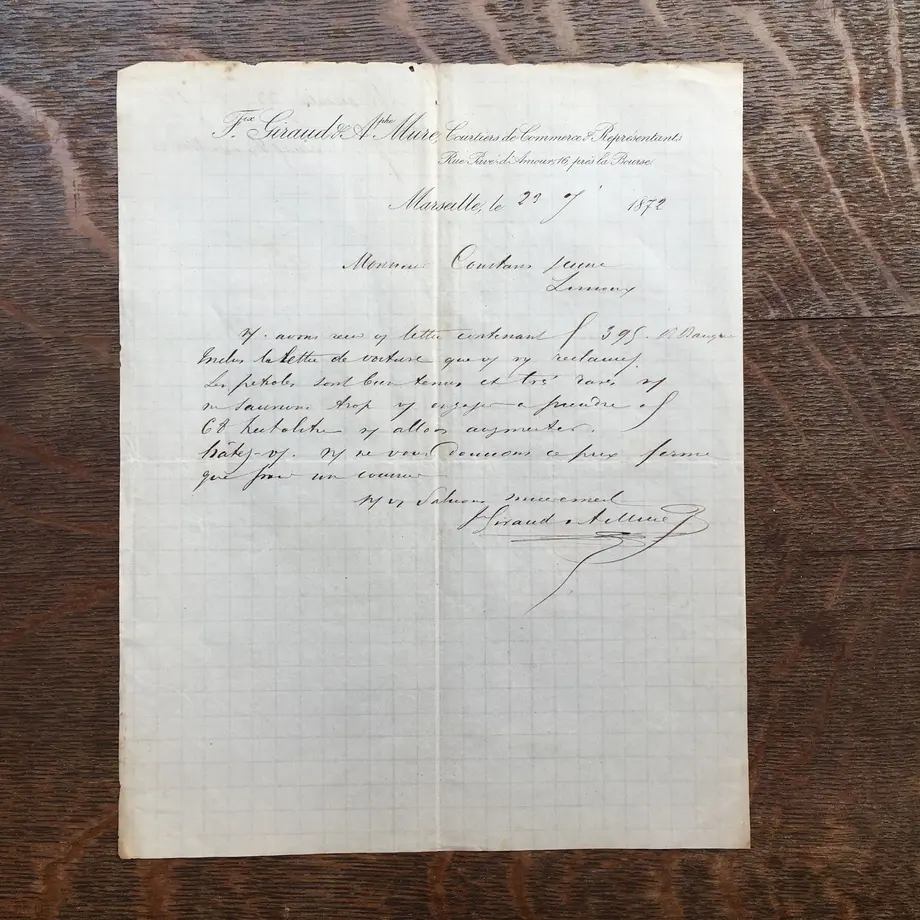 Fix Giraud & Aphe Mure, Courtiers de Commerce & Représentants
Rue Rive-d'Amour, 16, près la Bourse.
Marseille, le 23 1872
Monsieur Constans jeune
Limoux
avons reçu lettre contenant f 395.
Inclus la lettre de voiture que
Les pétroles sont bien tenus et très rares
ne saurions trop engager à prendre
68 hectolitre allons augmenter.
hâtez-vs. ne vous donnons ce prix ferme
que pour un courrier
Saluons sincèrement
F Giraud & A Mure